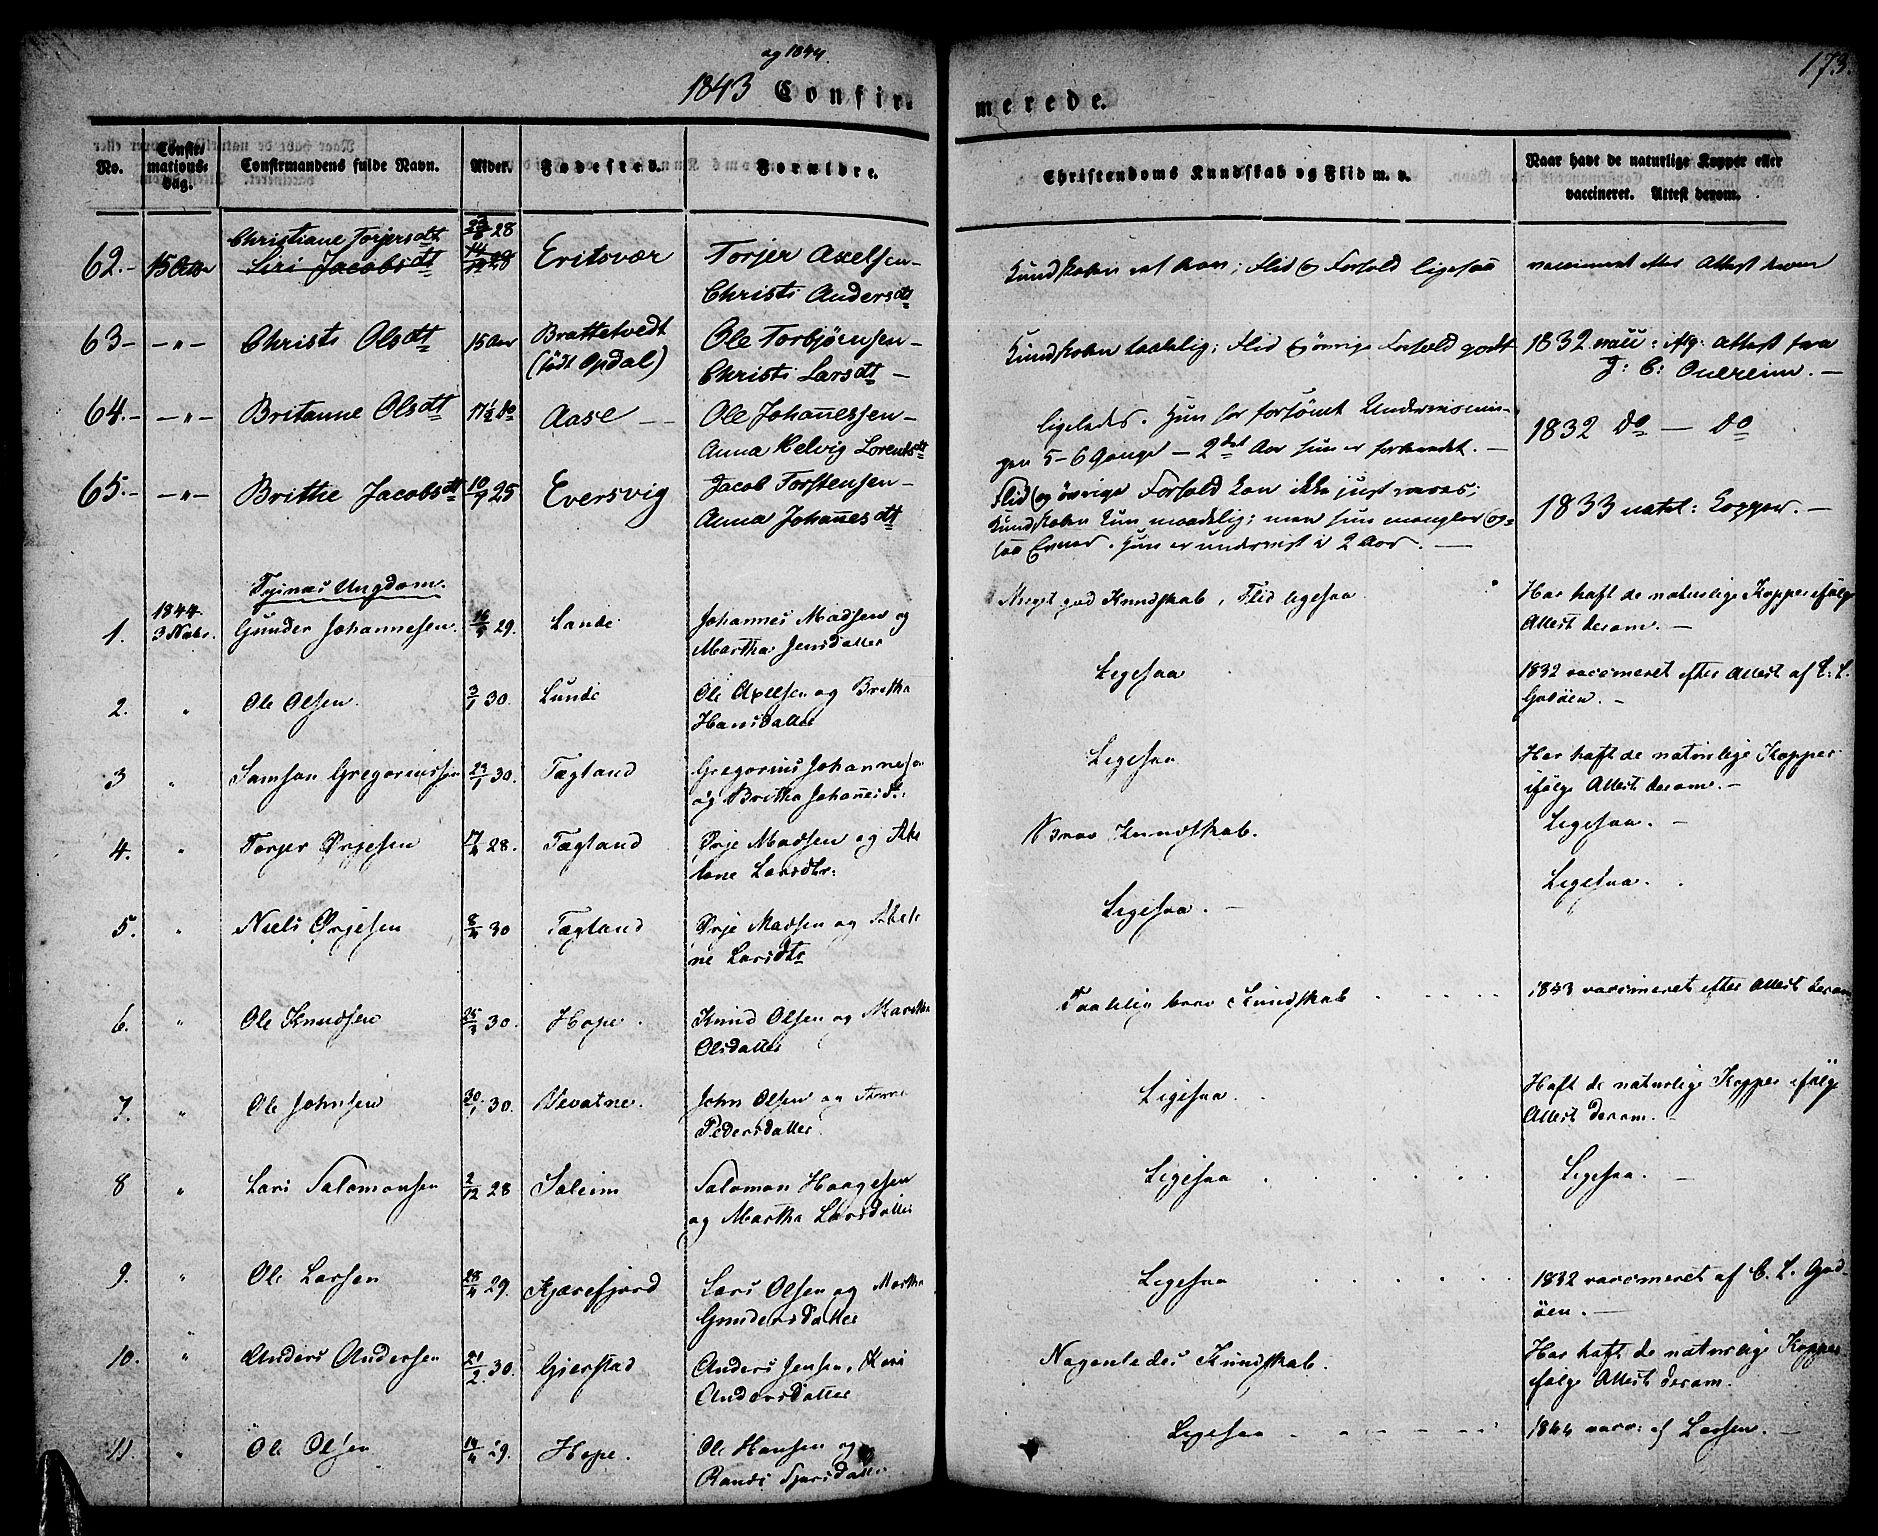 og 1844.
173.
1843 Confir-
merede.
No.
Confir-
mations-
dag.
Confirmandens fulde Navn.
Alder.
Fødested.
Forældre.
Christendoms Kundskab og Flid m. v.
Naar havt de naturlige Kopper eller
vaccineret. Attest derom.
62.- 15 Christiane Torjersdt 28 Eritsvær Torjer Axelsen-
Siri Jacobsdt 14/12 28 Christi Andersdt
Kundskaben ; Flid og Forhold ligesaa
vaccineret efter Attest derom
63- -"- Christi Olsdt 15 Aar Brattetvedt Ole Torbjørnsen-
(født Opdal) Christi Larsdt -
Kundskaben taalelig; Flid og øvrige Forhold godt
1832 vacc: Attest fra
J: C: -
64.- -"- Britanne Olsdt 17½ do Aase -- Ole Johannessen-
Anna Helvig Lorentsdt
ligeledes. Hun har forsømt Underviisnin-
gen 5-6 Gange - 2det Aar hun er forberedt. -
1832 do - do
65.- -"- Brithe Jacobsdt 10/7 25 Eversvig Jacob Torstensen-
Anna Johannesdt
Flid og øvrige Forhold kan ikke just roses;
Kundskaben kun maadelig; men hun mangler og-
saa Evner. Hun er underviist i 2 Aar. -
1833 natul: Kopper. -
Fjnas Ungdom.
1. 1844. 3 Nobr. Gunder Johannesen. 29. Lande Johannes Madsen og
Martha Jensdatter
Meget god Kundskab, Flid ligesaa
Har haft de naturlige Kopper ifølge
Attest derom. -
2. " Ole Olsen. 3/1 30. Lunde Ole Axelsen og Britha
Hansdatter
Ligesaa
1832 vaccineret efter Attest af C. L.
Godøen. -
3 " Samson Gregoriussen 29/1 30. Tægland Gregorius Johannesen
og Britha Johannesdt.
Ligesaa
Har haft de naturlige Kopper
ifølge Attest derom. -
4. " Torjer Ørjesen 17/4 28. Tægland Ørje Madsen og Abe
lone Larsdtr:
Brav Kundskab.
Ligesaa. -
5. " Niels Ørjesen 8/4 30 Tægland Ørje Madsen og Abelo
ne Larsdtr
Ligesaa. -
Ligesaa.
6. " Ole Knudsen 25/3 30. Hope. Knud Olsen og Martha
Olsdatter
Taalelig brav Kundskab
1843 vaccineret efter Attest derom
7. " Ole Johnsen 30/1 30. Nevatne. John Olsen og
Pedersdatter.
Ligesaa.
Haft de naturlige Kopper ifølge
Attest derom.
8 " Lars Salamonsen 2/12 28 Saleim Salamon Haagesen
og Martha Larsdatter
Ligesaa
Ligesaa. -
9. " Ole Larsen 28/4 29. Kjærefjord Lars Olsen og Martha
Gundersdatter
Ligesaa
1832 vaccineret af C. L. God-
øen. -
10. " Anders Andersen 21/2 30. Gjerstad Anders Jensen, Kari
Andersdatter
Nogenledes Kundskab.
Har haft de naturlige Kopper
ifølge Attest derom.
11. " Ole Olsen 14/4 29. Hope. Ole Hansen og
Randi Tjersdatter
Ligesaa
1844 vacc: af Larsen. -